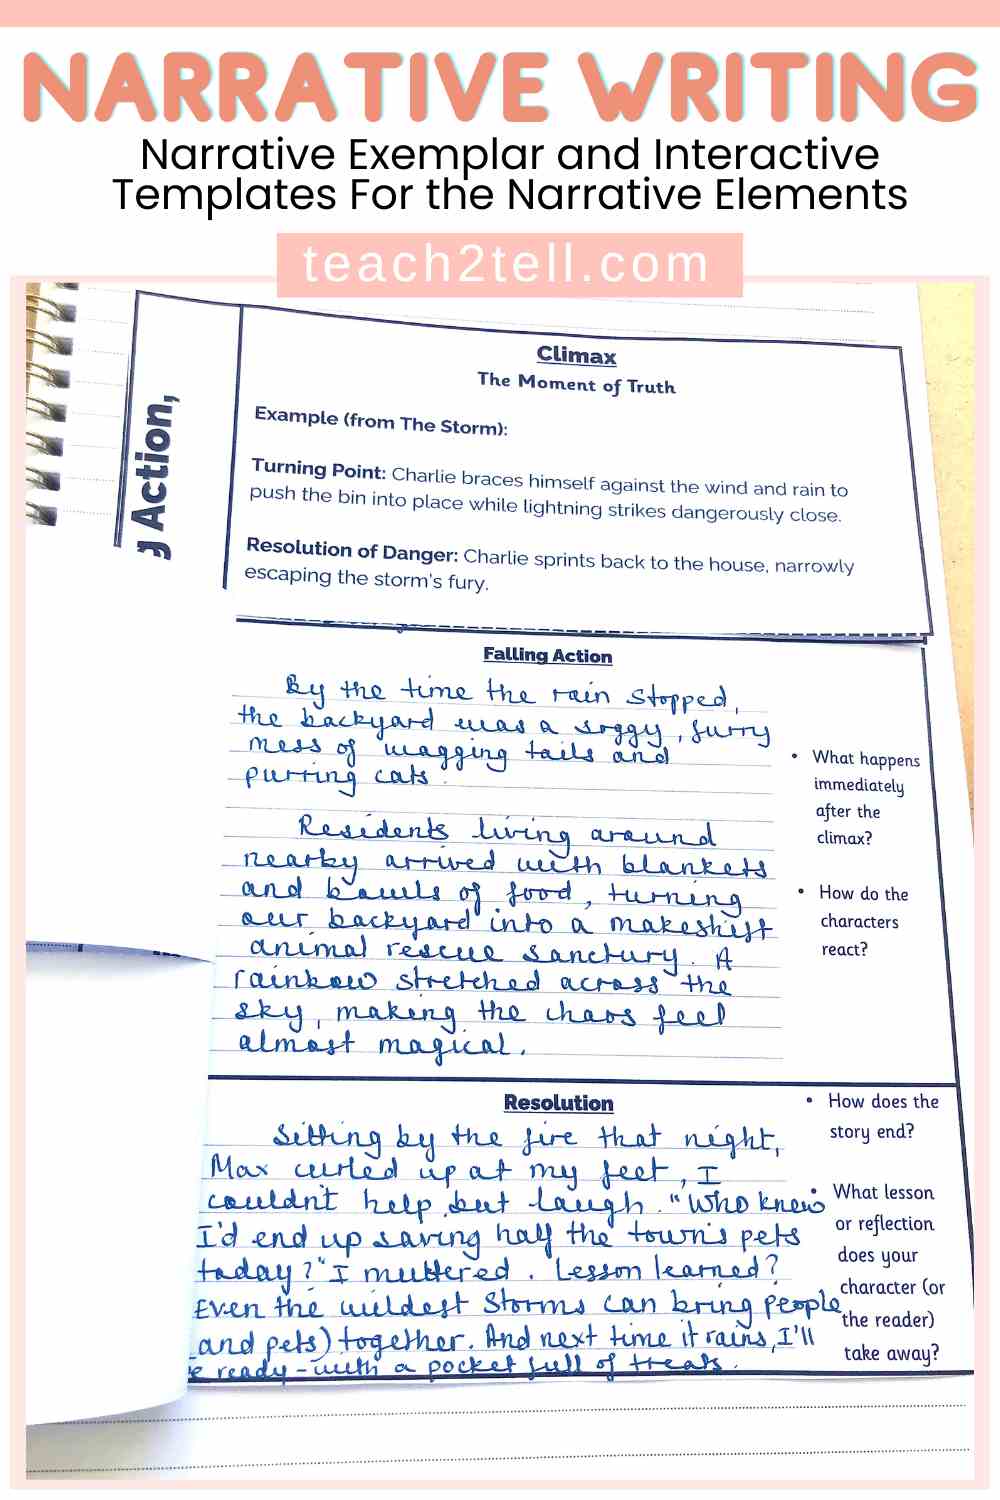 NARRATIVE WRITING
Narrative Exemplar and Interactive
Templates For the Narrative Elements
teach2tell.com
Action,
Climax
The Moment of Truth
Example (from The Storm):
Turning Point: Charlie braces himself against the wind and rain to
push the bin into place while lightning strikes dangerously close.
Resolution of Danger: Charlie sprints back to the house, narrowly
escaping the storm's fury.
Falling Action
By the time the rain stopped,
the backyard was a soggy, furry
mess of wagging tails and
purring cats.
Residents living around
nearby arrived with blankets
and bowls of food, turning
our backyard into a makeshift
animal rescue sanctury. A
rainbow stretched across the
sky, making the chaos feel
almost magical.
• What happens
immediately
after the
climax?
• How do the
characters
react?
Resolution
Sitting by the fire that night,
Max curled up at my feet, I
couldn't help but laugh. "Who knew
I'd end up saving half the town's pets
today?" I muttered. Lesson learned?
Even the wildest storms can bring people
and pets) together. And next time it rains, I'll
e ready - with a pocket full of treats.
• How does the
story end?
• What lesson
or reflection
does your
character (or
the reader)
take away?